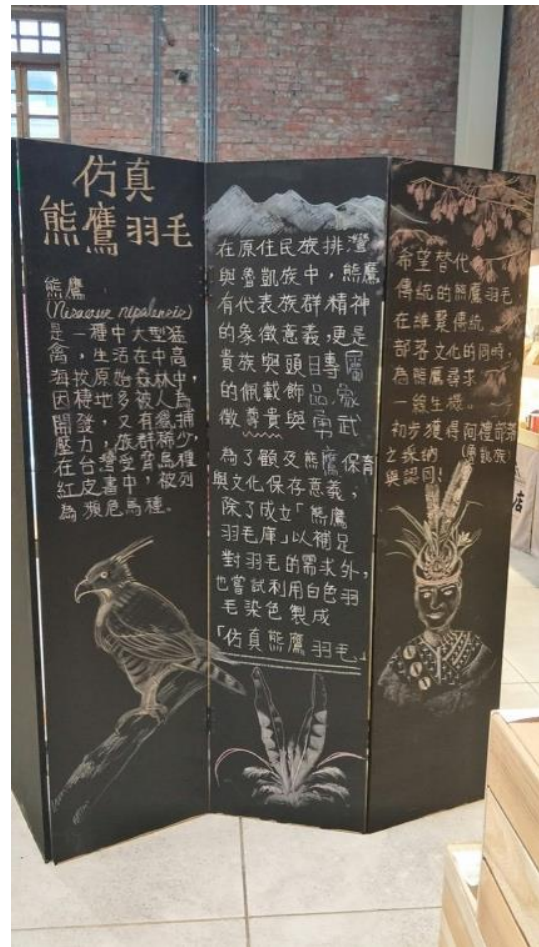 仿真
熊鷹羽毛
熊鷹
(Nisaetus nipalensis)
是一種中大型猛
禽,生活在中高
海拔原始森林中,
因棲地多被人為
開發,又有獵捕
壓力,族群稀少,
在台灣受脅鳥種
紅皮書中,被列
為瀕危鳥種。
在原住民族排灣
與魯凱族中,熊鷹
有代表族群精神
的象徵意義,更是
貴族與頭目專屬
的佩戴飾品,象
徵尊貴與勇武
為了顧及熊鷹保育
與文化保存意義,
除了成立「熊鷹
羽毛庫」以補足
對羽毛的需求外,
也嘗試利用白色羽
毛染色製成
「仿真熊鷹羽毛」
希望替代
傳統的熊鷹羽毛,
在維繫傳統
部落文化的同時,
為熊鷹尋求
一線生機。
初步獲得阿禮部落
之採納(魯凱族)
與認同!
店